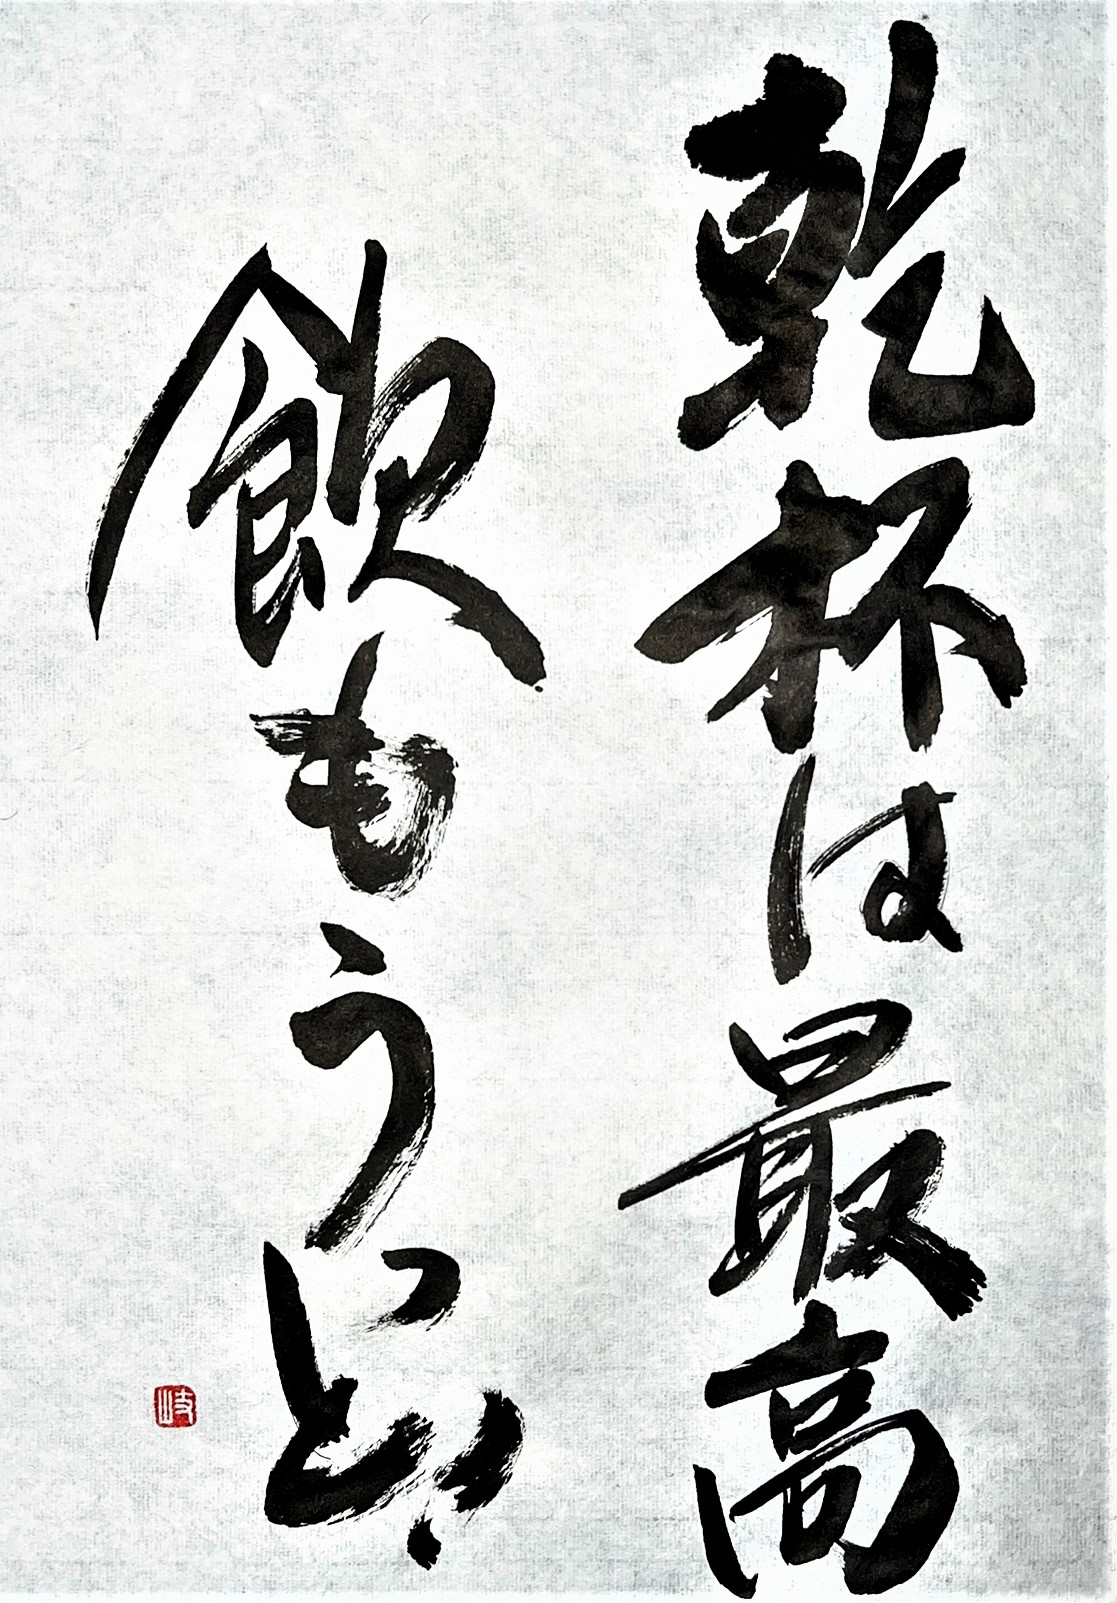 乾杯は最高
飲もう
岐